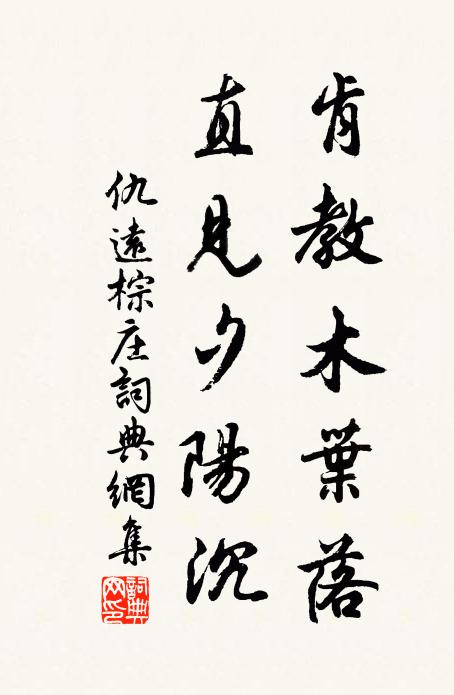 肯教木葉落
直見夕陽沉
仇遠棕庄詞典網集
詞典网印